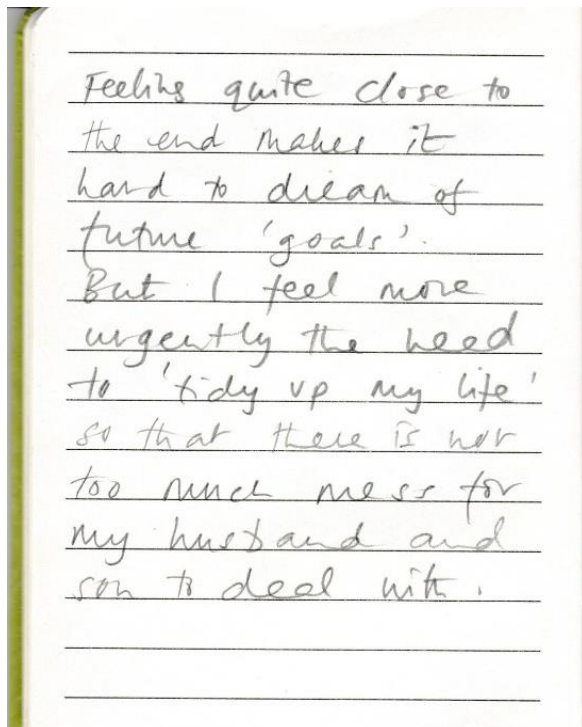 Feeling quite close to
the end makes it
hard to dream of
future 'goals'.
But I feel more
urgently the need
to 'tidy up my life'
so that there is not
too much mess for
my husband and
son to deal with.